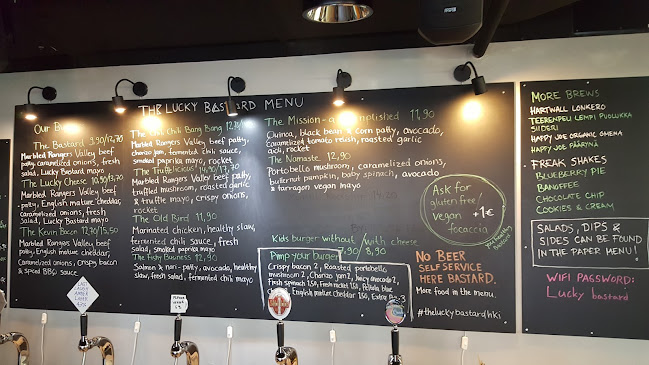 THE LUCKY BASTARD MENU
Our
The Bastard 9,90/12,70
Marbled Rangers Valley beef
patty, caramelized onions, fresh
salad, Lucky Bastard mayo
The Lucky Cheese 10,90/13,70
Marbled Rangers Valley beef
patty, English mature cheddar,
caramelized onions, fresh
salad, Lucky Bastard mayo
The Kevin Bacon 12,70/15,50
Marbled Rangers Valley beef
patty, English mature cheddar,
caramelized onions, crispy bacon
& Spiced BBQ sauce
Chili Bang Bang
Marbled Rangers Valley beef patty,
chorizo jam, fermented chili sauce,
smoked paprika mayo, rocket
The Truffelicious 14,90/17,70
Marbled Rangers Valley beef,
truffled mushroom, roasted garlic
& truffle mayo, crispy onions,
rocket
The Old Bird 11,90
Marinated chicken, healthy slaw,
fermented chili sauce, fresh
salad, smoked paprika mayo
The Fishy Business 12,90
Salmon & nori-patty, avocado, healthy
slaw, fresh salad, fermented chili mayo
The Mission - accomplished 11,90
Quinoa, black bean & corn patty, avocado,
caramelized tomato relish, roasted garlic
aioli, rocket
The Namaste 12,90
Portobello mushroom, caramelized onions,
butternut pumpkin, baby spinach, avocado
& tarragon vegan mayo
Kids burger without/with cheese
7,90/8,90
Pimp your burger
Crispy bacon 2, Roasted portobello
mushroom 2, Chorizo jam 2, Juicy avocado 2,
Fresh spinach 1,50, Fresh rocket 1,50,
English mature Cheddar 1,50, Extra
Ask for
gluten free/
vegan +1€
focaccia
NO BEER
SELF SERVICE
HERE BASTARD.
More food in the menu.
#theluckybastardhki
MORE BREWS
HARTWALL LONKERO
TEERENPELI LEMPI PUOLUKKA
SIIDERI
HAPPY JOE ORGANIC OMENA
HAPPY JOE PÄÄRYNÄ
FREAK SHAKES
BLUEBERRY PIE
BANOFFEE
CHOCOLATE CHIP
COOKIES & CREAM
SALADS, DIPS &
SIDES CAN BE FOUND
IN THE PAPER MENU!
WIFI PASSWORD:
Lucky bastard